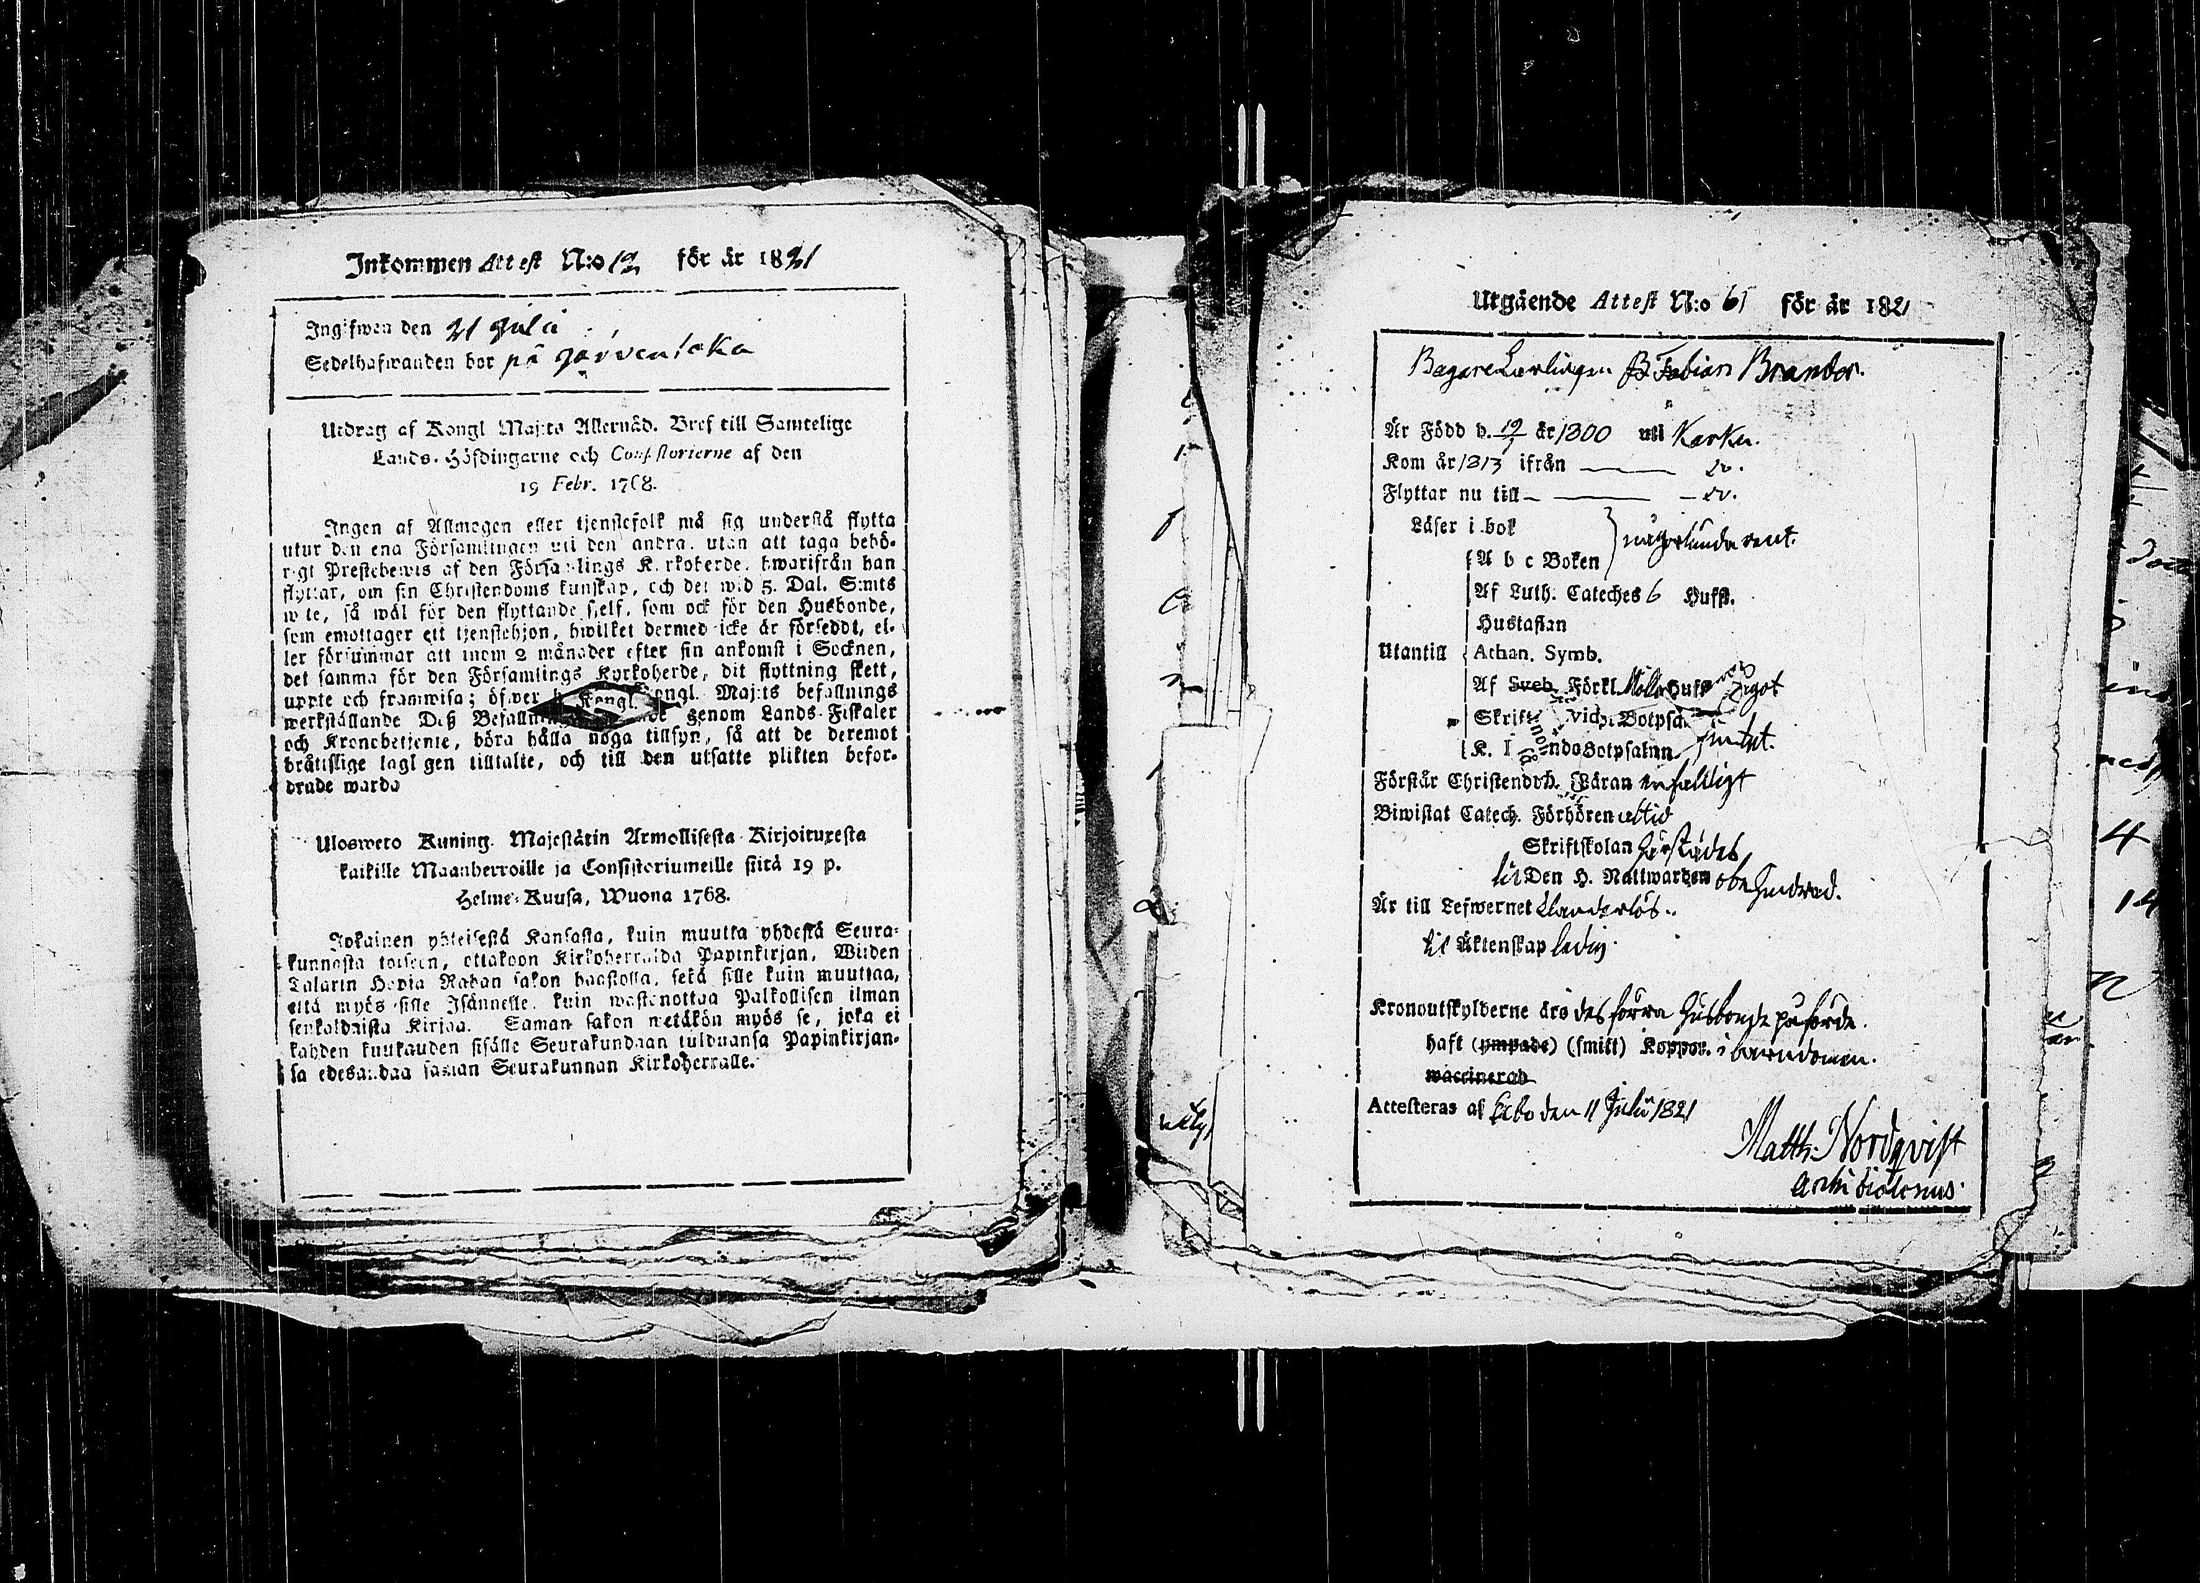 Inkommen Attest N:o 12 för år 1821
Ingifwen den 21 Julii
Sedelhafwanden bor på Järvenicka
Utdrag af Kongl Maj:ts Allernåd. Bref till Samtelige
Lands-Höfdingarne och Consistorierne af den
19 Febr. 1768.
Ingen af Allmogen eller tjenstefolk må sig understå flytta
utur den ena Församlingen uti den andra, utan att taga behö-
rigt Prestebewis af den Församlings Kyrkoherde, hwarifrån han
flyttar, om sin Christendoms kunskap, och det wid 5. Dal. S:mts
wite, så wäl för den flyttande sjelf, som ock för den Husbonde,
som emottager ett tjenstehjon, hwilket dermed icke är försedt, el-
ler försummar att inom 2 månader efter sin ankomst i Socknen,
det samma för den Församlings Kyrkoherde, dit flyttning skett,
uppte och framwisa; öfwer Kongl. Maj:ts befallnings
werkställande Deß Befallnin genom Lands-Fiskaler
och Kronobetjente, böra hålla noga tillsyn, så att de deremot
brättslige lagl gen tilltalte, och till den utsatte plikten befor-
drade warda
Uloswetto Kuning. Majestätin Armollisesta Kirjoituxesta
kaikille Maanherroille ja Consistoriumeille siitä 19 p.
Helme-Kuusa, Wuona 1768.
Jokainen yhteisestä Kansasta, kuin muutta yhdestä Seura-
kunnasta toiseen, ottakoon Kirkoherralda Papinkirjan, Wiiden
Talarin Hopia Rahan sakon haastolla, sekä sille kuin muuttaa,
että myös sille Isännelle, kuin wastanottaa Palkollisen ilman
senkaldaista Kirjaa. Saman sakon wetäkön myös se, joka ei
kahden kuukauden sisälle Seurakundaan tulduansa Papinkirjan-
sa edesandaa saman Seurakunnan Kirkoherralle.
Utgående Attest N:o 61 för år 1821
Bagare Lærlingen Fabian Brander.
Är Född d. 19/1 år 1800 uti Karku.
Kom år 1813 ifrån
Flyttar nu till
Läser i bok
A b c Boken
någorlunda rent.
Af Luth. Cateches 6 Hufst.
Hustaflan
Utantill Athan. Symb.
Af Sveb. Förkl. Hufst något
Skrift vid. Botpsa
K. nda Botpsalmn intet.
Förstår Christend. Läran enfaldigt
Biwistat Catech. Förhören altid
Skriftskolan härstädes
til Den H. Nattwarden obehindrad.
Är till Lefwernet klanderlös.
til Äktenskap ledig.
Kronoutskylderne äro des förra Husbonde påförde.
haft (ympade) (smitt) Koppor. i barndomen.
waccinerad
Attesteras af Åbo den 11 Julii 1821
Matth: Nordqvist
Archidiaconus.
4
14